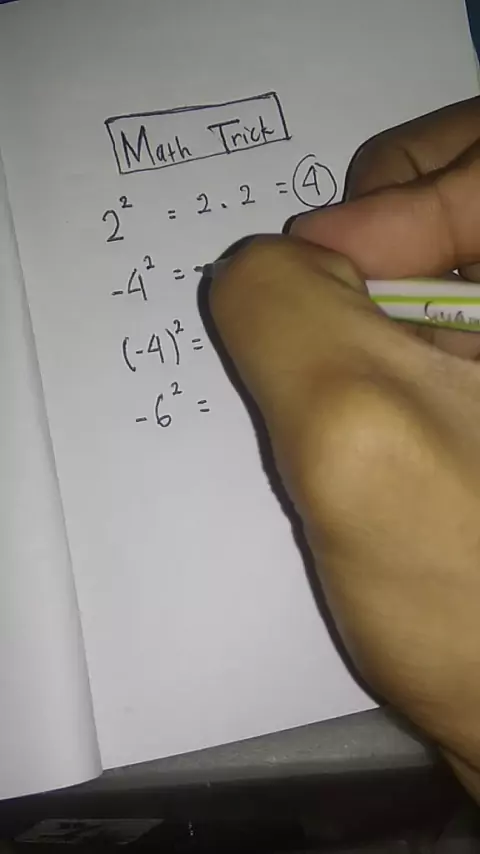 Math Trick
2² = 2 . 2 = 4
-4² = -
(-4)² =
-6² =